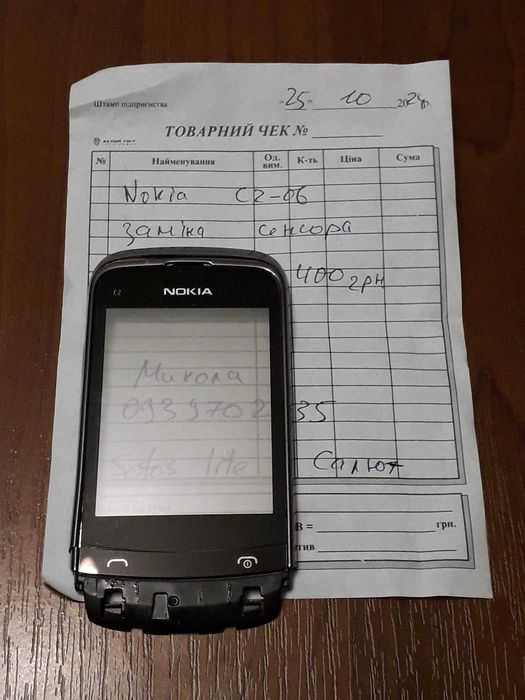 Штамп підприємства "25" 10 2024р.
ТОВАРНИЙ ЧЕК №
№ Найменування Од. вим. К-ть Ціна Сума
Nokia C2-06
заміна сенсора
400 грн
C2 NOKIA
Микола
093 9702 35
lite Салют
В = грн.
тив